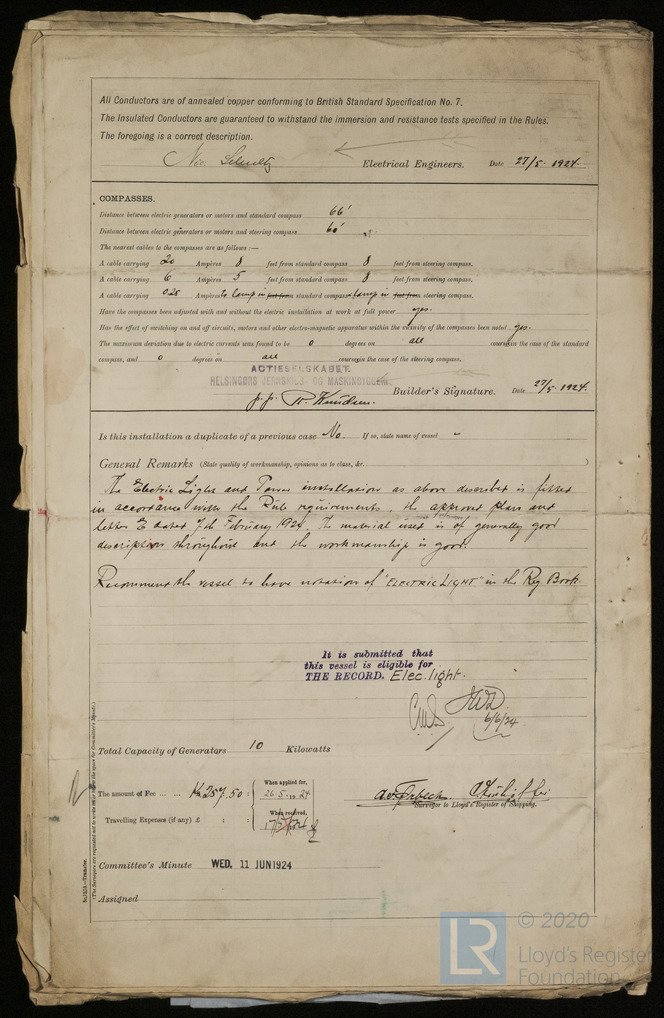 All Conductors are of annealed copper conforming to British Standard Specification No. 7.
The Insulated Conductors are guaranteed to withstand the immersion and resistance tests specified in the Rules.
The foregoing is a correct description.
Electrical Engineers. Date 27/5. 1924.
COMPASSES.
Distance between electric generators or motors and standard compass 66'
Distance between electric generators or motors and steering compass 60'
The nearest cables to the compasses are as follows:—
A cable carrying 20 Ampères 8 feet from standard compass 8 feet from steering compass.
A cable carrying 6 Ampères 5 feet from standard compass 8 feet from steering compass.
A cable carrying 0.25 Ampères to lamp in feet from standard compass lamp in feet from steering compass.
Have the compasses been adjusted with and without the electric installation at work at full power yes.
Has the effect of switching on and off circuits, motors and other electro-magnetic apparatus within the vicinity of the compasses been noted yes.
The maximum deviation due to electric currents was found to be 0 degrees on all courses in the case of the standard
compass, and 0 degrees on all courses in the case of the steering compass.
ACTIESELSKABET.
HELSINGØRS JERNSKIBS- OG MASKINBYGGERI
p.p. Knudsen. Builder's Signature. Date 27/5. 1924.
Is this installation a duplicate of a previous case No. If so, state name of vessel -
General Remarks (State quality of workmanship, opinions as to class, &c. )
The Electric Light and Power installation as above described is fitted
in accordance with the Rule requirements, the approved plan and
letter E dated 7th February 1924. The material used is of generally good
description throughout and the workmanship is good.
Recommend the vessel to have notation of "ELECTRIC LIGHT" in the Reg. Book.
It is submitted that
this vessel is eligible for
THE RECORD. Elec. light.
6/6/24
Total Capacity of Generators 10 Kilowatts
The amount of Fee ... ... Kr 257.50 :
When applied for,
26.5.1924
Travelling Expenses (if any) £ : :
When received,
Surveyor to Lloyd's Register of Shipping.
Committee's Minute WED. 11 JUN 1924
Assigned
© 2020
LR
Lloyd's Register
Foundation